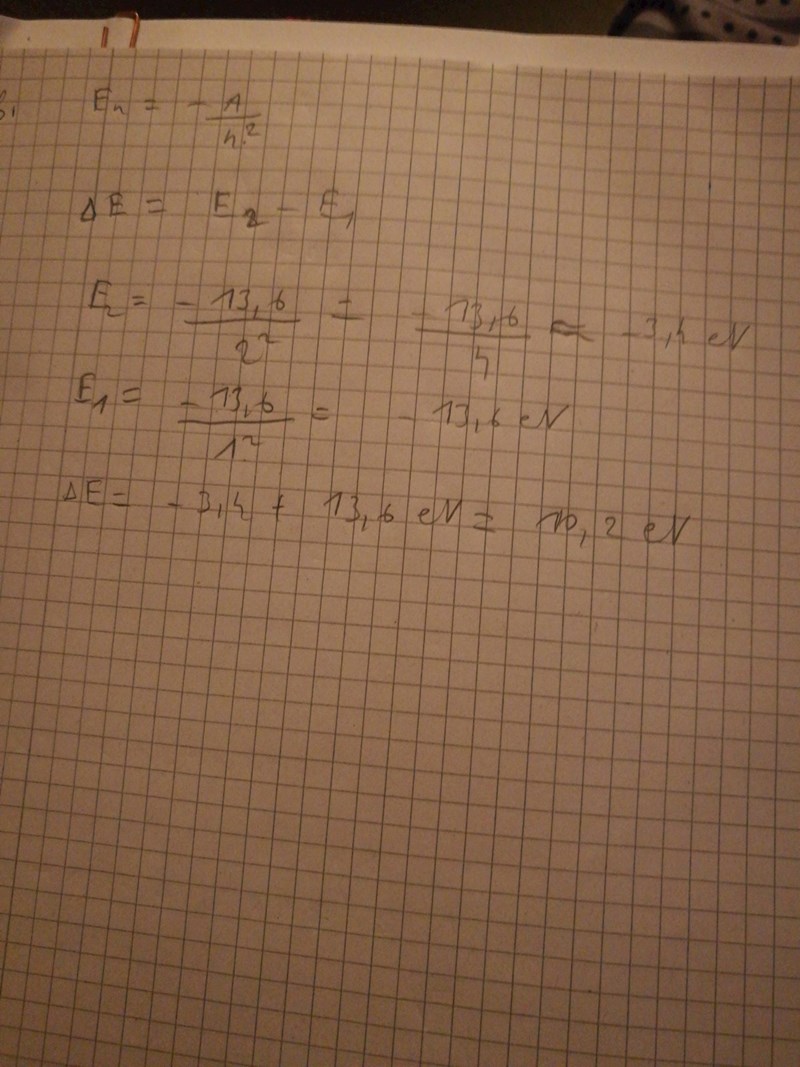 Eₙ = - A/n²
ΔE = E₂ - E₁
E₂ = - 13,6/2² = - 13,6/4 ≈ -3,4 eV
E₁ = - 13,6/1² = - 13,6 eV
ΔE = - 3,4 + 13,6 eV = 10,2 eV